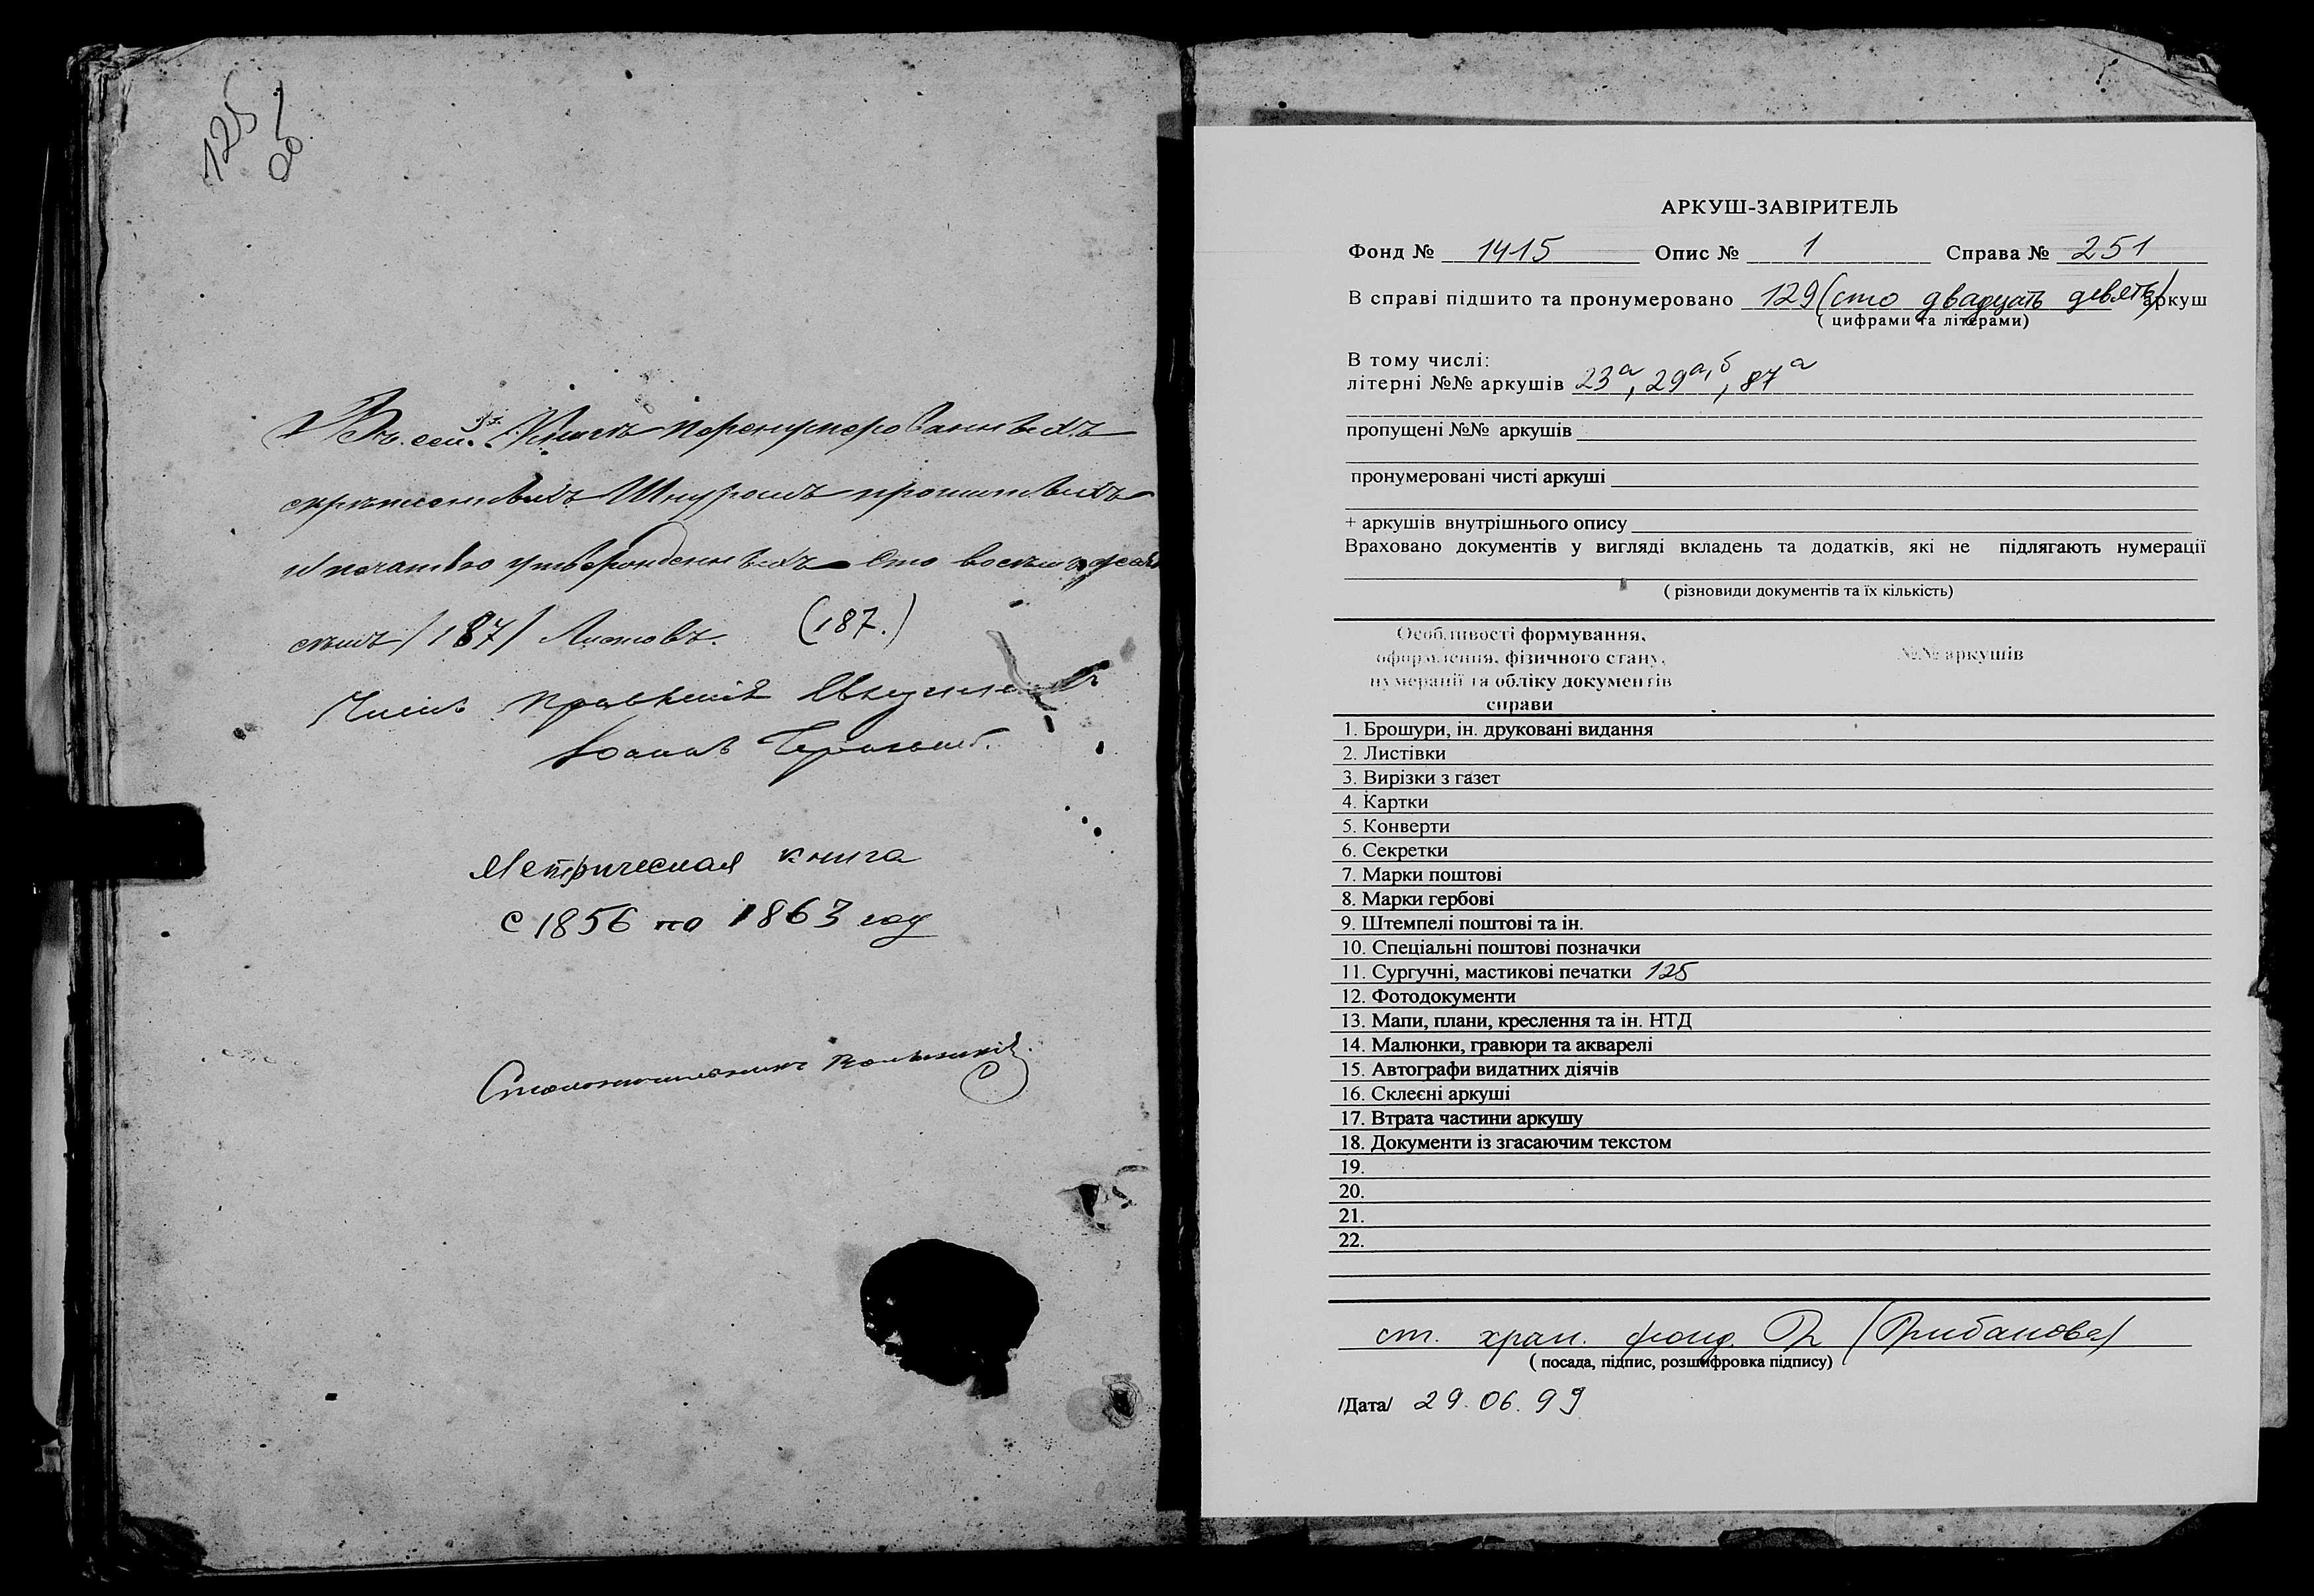 125
об.
Въ сей Книгѣ перенумерованныхъ
скрѣпленныхъ Шнуромъ прошитыхъ
и печатью утвержденныхъ Сто восемьдесят
семь /187/ Листовъ. (187.)
Членъ Правленія
Іоаннъ
Метрическая книга
с 1856 по 1863 год
Столоначальникъ
АРКУШ-ЗАВІРИТЕЛЬ
Фонд № 1415 Опис № 1 Справа № 251
В справі підшито та пронумеровано 129 (сто двадцать девять) аркуш
( цифрами та літерами)
В тому числі:
літерні №№ аркушів 23а, 29а,б, 87а
пропущені №№ аркушів
пронумеровані чисті аркуші
+ аркушів внутрішнього опису
Враховано документів у вигляді вкладень та додатків, які не підлягають нумерації
( різновиди документів та їх кількість)
Особливості формування, 
оформлення, фізичного стану, №№ аркушів
нумерації та обліку документів
справи
1. Брошури, ін. друковані видання
2. Листівки
3. Вирізки з газет
4. Картки
5. Конверти
6. Секретки
7. Марки поштові
8. Марки гербові
9. Штемпелі поштові та ін.
10. Спеціальні поштові позначки
11. Сургучні, мастикові печатки 125
12. Фотодокументи
13. Мапи, плани, креслення та ін. НТД
14. Малюнки, гравюри та акварелі
15. Автографи видатних діячів
16. Склеєні аркуші
17. Втрата частини аркушу
18. Документи із згасаючим текстом
19.
20.
21.
22.
ст. хран. фонд. (Рибанова)
( посада, підпис, розшифровка підпису)
/Дата/ 29.06.99